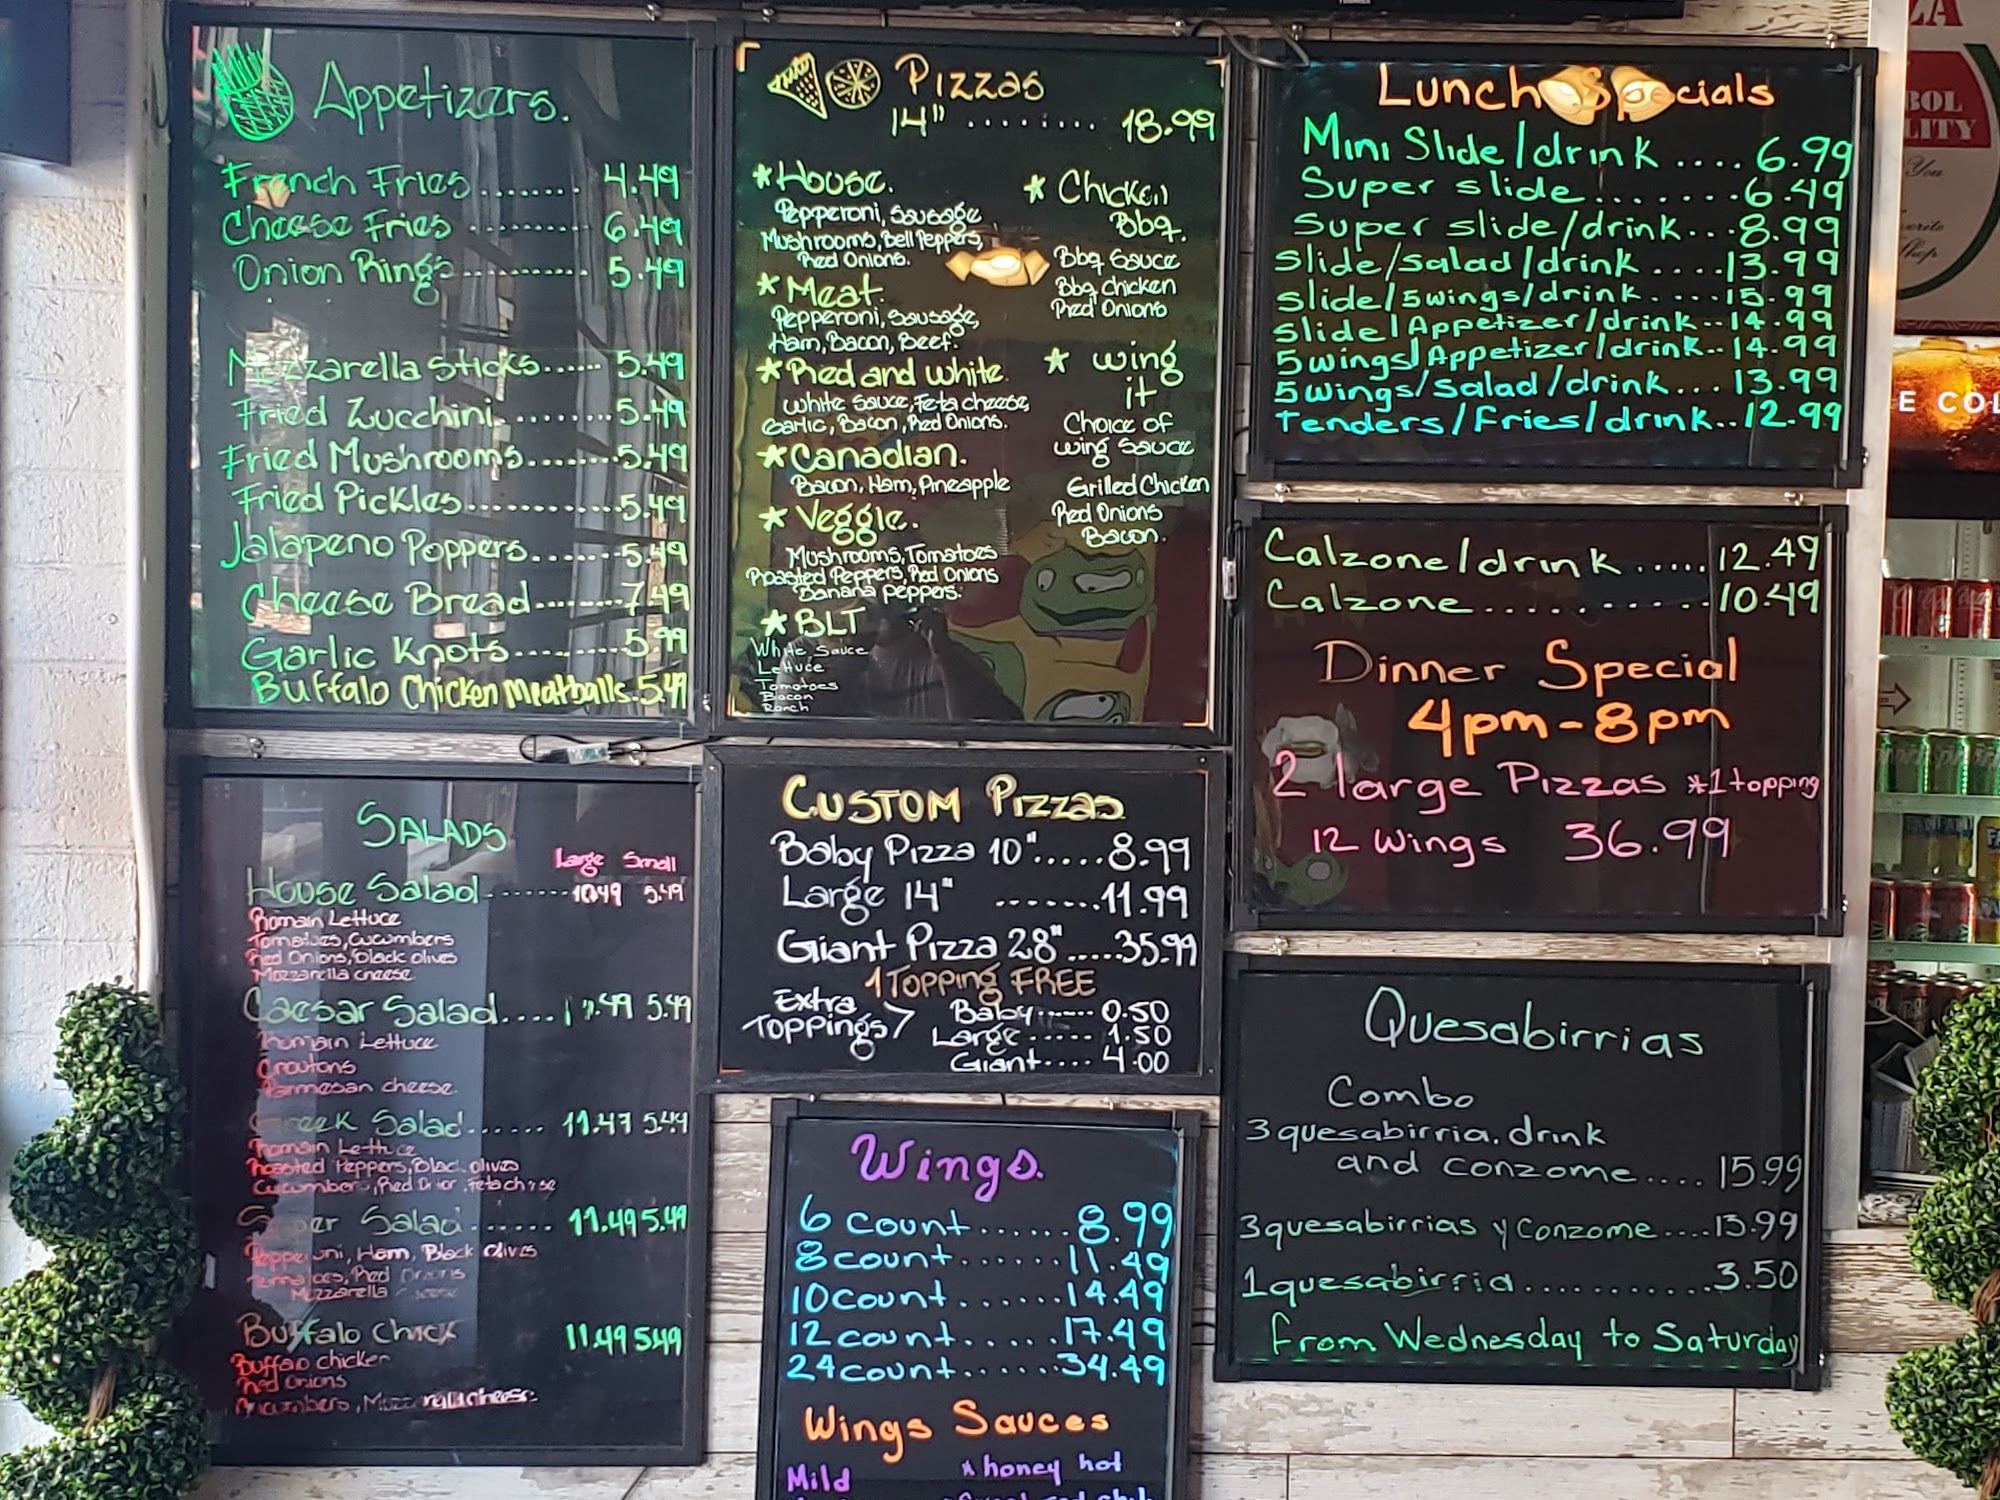 Appetizers.
French Fries........ 4.49
Cheese Fries .......... 6.49
Onion Rings........... 5.49
Mozzarella Sticks...... 5.49
Fried Zucchini.........5.49
Fried Mushrooms........5.49
Fried Pickles...........5.49
Jalapeno Poppers.......5.49
Cheese Bread........7.49
Garlic Knots.........5.99
Buffalo Chicken Meatballs.5.49
Pizzas
14" ......... 18.99
*House.
Pepperoni, Sausage
Mushrooms, Bell Peppers,
Red Onions.
*Meat.
Pepperoni, Sausage,
Ham, Bacon, Beef.
*Red and White.
White Sauce, Feta cheese,
Garlic, Bacon, Red Onions.
*Canadian.
Bacon, Ham, Pineapple
*Veggie.
Mushrooms, Tomatoes
Roasted Peppers, Red Onions
Banana peppers.
*BLT
White Sauce
Lettuce
Tomatoes
Bacon
Ranch
* Chicken
Bbq.
Bbq Sauce
Bbq chicken
Red Onions
* Wing
it
Choice of
wing sauce
Grilled Chicken
Red Onions
Bacon.
Lunch Specials
Mini Slide/drink .... 6.99
Super slide.......6.49
Super slide/drink...8.99
Slide/salad/drink ....13.99
Slide/5wings/drink....15.99
Slide/Appetizer/drink..14.99
5wings/Appetizer/drink..14.99
5wings/Salad/drink...13.99
Tenders/Fries/drink..12.99
Calzone/drink .....12.49
Calzone...........10.49
Dinner Special
4pm-8pm
2 large Pizzas *1topping
12 wings 36.99
SALADS
Large Small
House Salad.......10.49 5.49
Romain Lettuce
Tomatoes, Cucumbers
Red Onions, Black olives
Mozzarella cheese
Caesar Salad.... 5.49
Romain Lettuce
Croutons
Parmesan cheese.
Greek Salad....... 11.47 5.49
Romain Lettuce
Roasted Peppers, Black olives
Cucumbers, Red Onion, Feta cheese
Super Salad....... 11.49 5.49
Pepperoni, Ham, Black Olives
Tomatoes, Red Onions
Mozzarella
Buffalo Chick 11.49 5.49
Buffalo chicken
Red Onions
Cucumbers, Mozzarella cheese.
CUSTOM Pizzas
Baby Pizza 10".....8.99
Large 14" ........11.99
Giant Pizza 28".....35.99
1 Topping FREE
Extra
Toppings >
Baby...... 0.50
Large...... 1.50
Giant.... 4.00
Wings.
6 count......8.99
8 count......11.49
10 count......14.49
12 count.....17.49
24 count......34.49
Wings Sauces
Mild
*honey hot
Quesabirrias
Combo
3 quesabirria. drink
and conzome....15.99
3 quesabirrias y Conzome....13.99
1 quesabirria............3.50
From Wednesday to Saturday